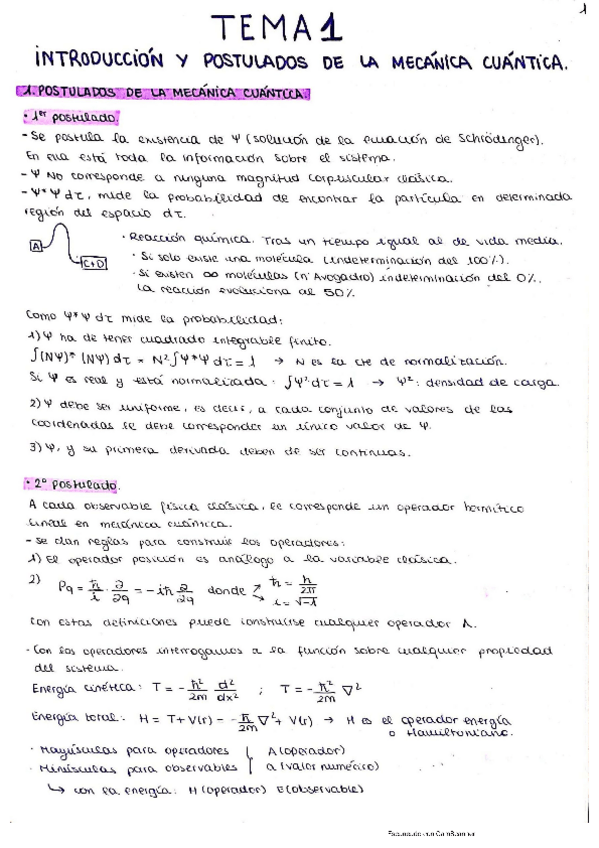 1
TEMA 1
INTRODUCCIÓN Y POSTULADOS DE LA MECÁNICA CUÁNTICA.
1. POSTULADOS DE LA MECÁNICA CUÁNTICA.
· 1er postulado.
- Se postula la existencia de Ψ (solución de la ecuación de Schrödinger).
En ella está toda la información sobre el sistema.
- Ψ NO corresponde a ninguna magnitud corpuscular clásica.
- Ψ*Ψ dτ, mide la probabilidad de encontrar la partícula en determinada
región del espacio dτ.
A
C+D
· Reacción química. Tras un tiempo igual al de vida media.
· Si solo existe una molécula (indeterminación del 100%).
· Si existen ∞ moléculas (nº Avogadro) indeterminación del 0%.
La reacción evoluciona al 50%
Como Ψ*Ψ dτ mide la probabilidad:
1) Ψ ha de tener cuadrado integrable finito.
∫(NΨ)* (NΨ) dτ = N² ∫Ψ*Ψ dτ = 1 → N es la cte de normalización.
Si Ψ es real y está normalizada: ∫Ψ² dτ = 1 → Ψ²: densidad de carga.
2) Ψ debe ser uniforme, es decir, a cada conjunto de valores de las
coordenadas le debe corresponder un único valor de Ψ.
3) Ψ, y su primera derivada deben de ser continuas.
· 2º postulado.
A cada observable física clásica, le corresponde un operador hermítico
lineal en mecánica cuántica.
- Se dan reglas para construir los operadores:
1) El operador posición es análogo a la variable clásica.
2) Pq = ħ/i · ∂/∂q = -iħ ∂/∂q donde ħ = h/2π
i = √-1
Con estas definiciones puede construirse cualquier operador A.
· Con los operadores interrogamos a la función sobre cualquier propiedad
del sistema.
Energía cinética: T = - ħ²/2m d²/dx² ; T = - ħ²/2m ∇²
Energía total: H = T + V(r) - - ħ/2m ∇² + V(r) → H es el operador energía
o Hamiltoniano.
· Mayúsculas para operadores A (operador)
· Minúsculas para observables a (valor numérico)
↳ con la energía: H (operador) E (observable)
Escaneado con CamScanner